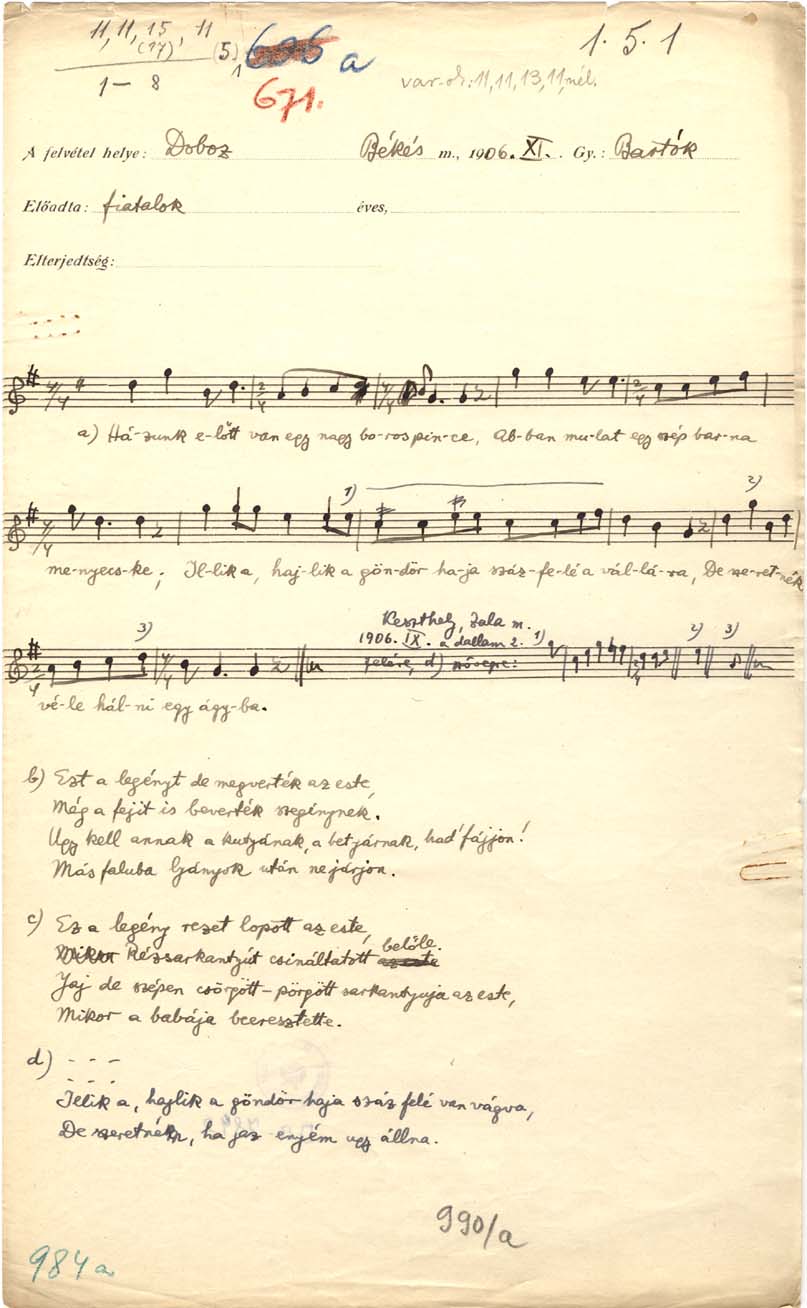 11, 11, 15, 11
(17)
(5)
1 - 8
1
606 a
671.
1. 5. 1
var. ok. 11, 11, 13, 11, nél.
A felvétel helye: Doboz Békés m., 1906. XI. Gy.: Bartók
Előadta: fiatalok éves,
Elterjedtség:
a) Há-zunk e-lőtt van egy nagy bo-ros pin-ce, Ab-ban mu-lat egy szép bar-na
1) 2)
me-nyecs-ke; Il-lik a, haj-lik a gön-dör ha-ja száz-fe-lé a vál-lá-ra, De sze-ret-nék
3) Keszthely, Zala m.
1906. IX. a dallam 2. 1) 2) 3)
felére, d) szövegre:
vé-le hál-ni egy ágy-ba.
b) Ezt a legényt de megverték az este,
Még a fejit is beverték szegénynek.
Ugy kell annak a kutyának, a betyárnak, had' fájjon!
Más faluba lyányok után ne járjon.
c) Ez a legény rezet lopott az este,
Mikor Rézsarkantyút csináltatott az este belőle.
Jaj de szépen csörgött-pörgött sarkantyuja az este,
Mikor a babája beeresztette.
d) - - -
- - -
Illik a, hajlik a göndör haja száz felé van vágva,
De szeretném, ha jaz enyém ugy állna.
990/a
984 a